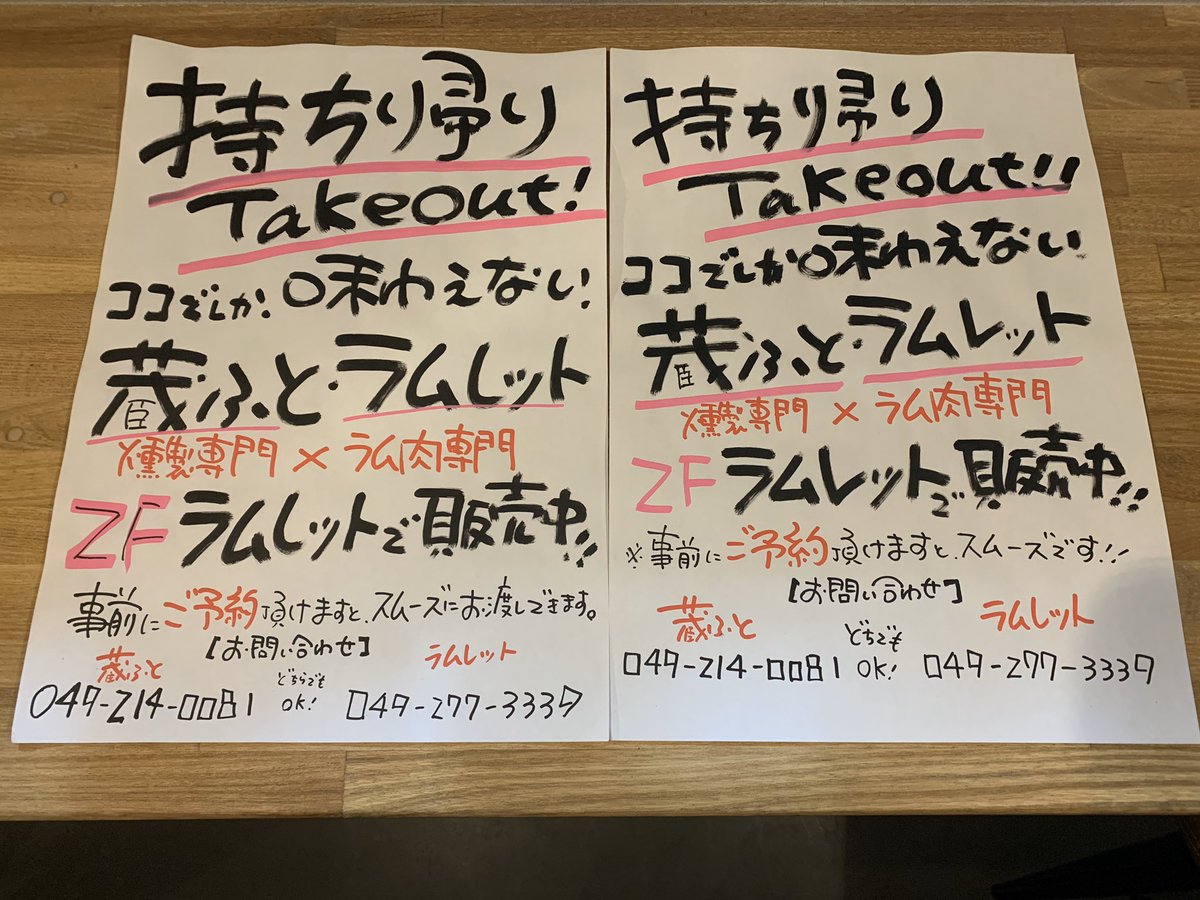 持ちり帰り
Takeout!
ココでしか味わえない!
蔵ふと・ラムレット
燻製専門×ラム肉専門
2Fラムレットで販売中!!
事前にご予約頂けますと、スムーズにお渡しできます。
【お問い合わせ】
蔵ふと どちらでもOK! ラムレット
049-214-0081 049-277-3339
持ちり帰り
Takeout!!
ココでしか味わえない
蔵ふと・ラムレット
燻製専門×ラム肉専門
2Fラムレットで販売中!!
※事前にご予約頂けますと、スムーズです!!
【お問い合わせ】
蔵ふと どちでもOK! ラムレット
049-214-0081 049-277-3339